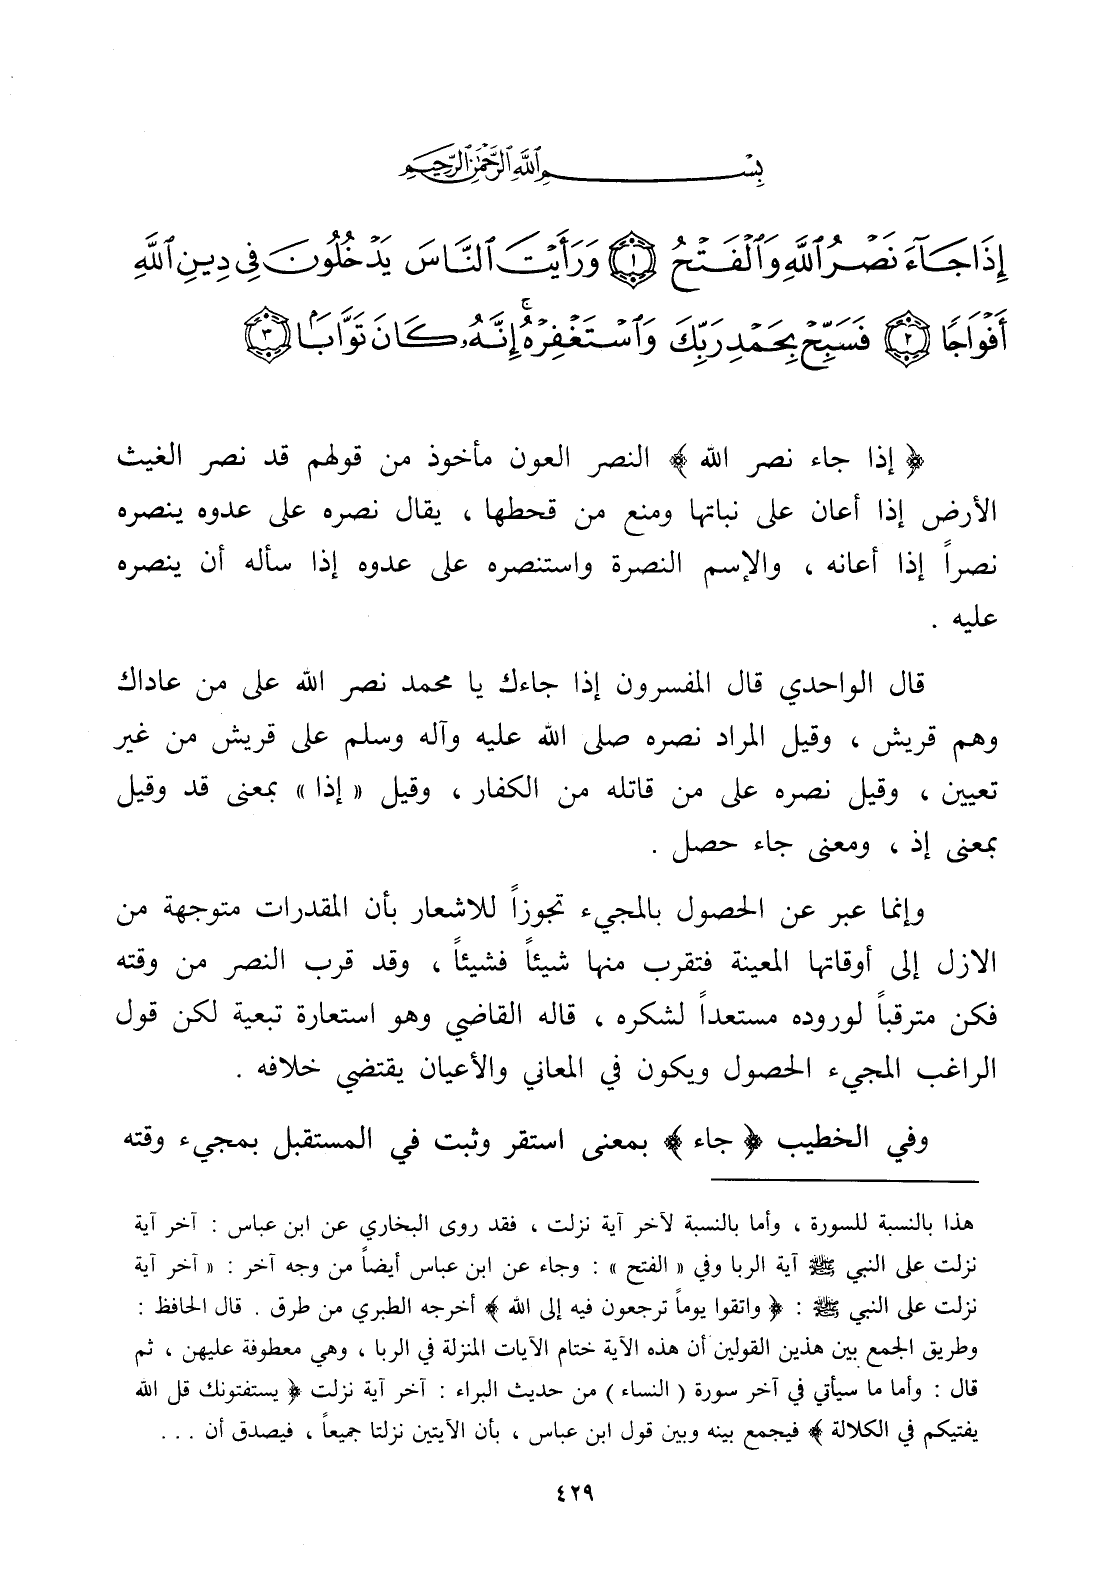 بِسْمِ ٱللَّهِ ٱلرَّحْمَٰنِ ٱلرَّحِيمِ
إِذَا جَآءَ نَصْرُ ٱللَّهِ وَٱلْفَتْحُ ١ وَرَأَيْتَ ٱلنَّاسَ يَدْخُلُونَ فِى دِينِ ٱللَّهِ
أَفْوَاجًا ٢ فَسَبِّحْ بِحَمْدِ رَبِّكَ وَٱسْتَغْفِرْهُ ۚ إِنَّهُۥ كَانَ تَوَّابًۢا ٣
﴿ إذا جاء نصر الله ﴾ النصر العون مأخوذ من قولهم قد نصر الغيث
الأرض إذا أعان على نباتها ومنع من قحطها ، يقال نصره على عدوه ينصره
نصراً إذا أعانه ، والإسم النصرة واستنصره على عدوه إذا سأله أن ينصره
عليه .
قال الواحدي قال المفسرون إذا جاءك يا محمد نصر الله على من عاداك
وهم قريش ، وقيل المراد نصره صلى الله عليه وآله وسلم على قريش من غير
تعيين ، وقيل نصره على من قاتله من الكفار ، وقيل « إذا » بمعنى قد وقيل
بمعنى إذ ، ومعنى جاء حصل .
وإنما عبر عن الحصول بالمجيء تجوزاً للاشعار بأن المقدرات متوجهة من
الازل إلى أوقاتها المعينة فتقرب منها شيئاً فشيئاً ، وقد قرب النصر من وقته
فكن مترقباً لوروده مستعداً لشكره ، قاله القاضي وهو استعارة تبعية لكن قول
الراغب المجيء الحصول ويكون في المعاني والأعيان يقتضي خلافه .
وفي الخطيب ﴿ جاء ﴾ بمعنى استقر وثبت في المستقبل بمجيء وقته
هذا بالنسبة للسورة ، وأما بالنسبة لآخر آية نزلت ، فقد روى البخاري عن ابن عباس : آخر آية
نزلت على النبي ﷺ آية الربا وفي « الفتح » : وجاء عن ابن عباس أيضاً من وجه آخر : « آخر آية
نزلت على النبي ﷺ : ﴿ واتقوا يوماً ترجعون فيه إلى الله ﴾ أخرجه الطبري من طرق . قال الحافظ :
وطريق الجمع بين هذين القولين أن هذه الآية ختام الآيات المنزلة في الربا ، وهي معطوفة عليهن ، ثم
قال : وأما ما سيأتي في آخر سورة ( النساء ) من حديث البراء : آخر آية نزلت ﴿ يستفتونك قل الله
يفتيكم في الكلالة ﴾ فيجمع بينه وبين قول ابن عباس ، بأن الآيتين نزلتا جميعاً ، فيصدق أن ...
٤٢٩